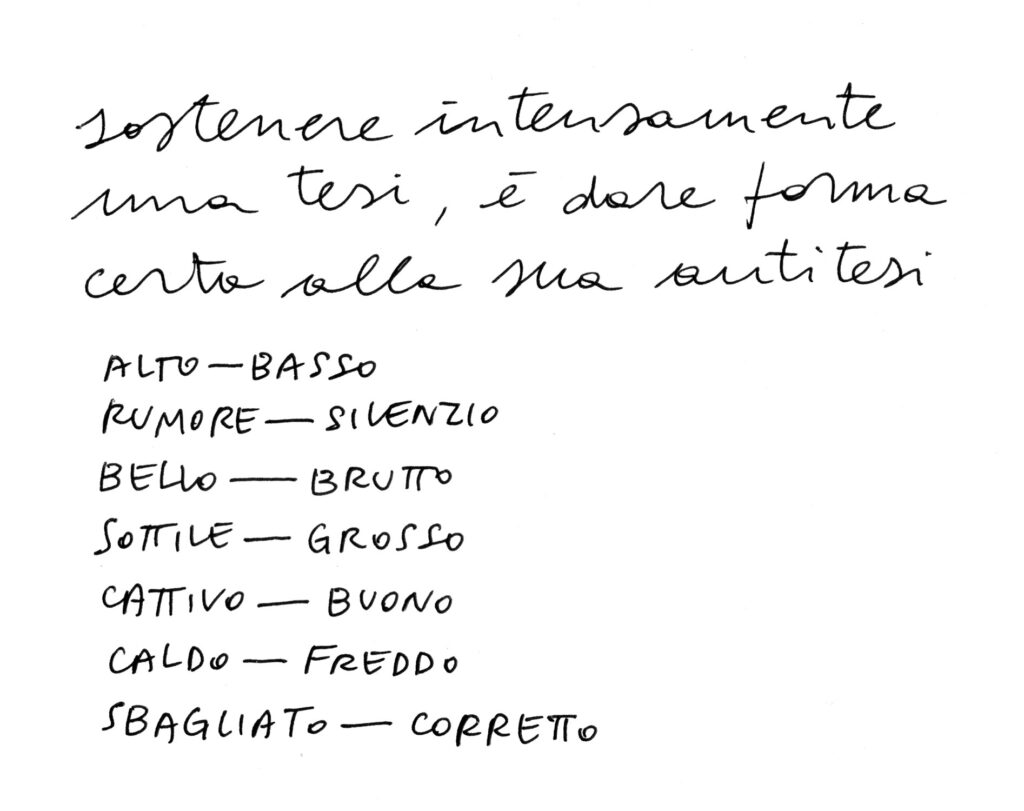 sostenere intensamente
una tesi, è dare forma
certa alla sua antitesi
ALTO — BASSO
RUMORE — SILENZIO
BELLO — BRUTTO
SOTTILE — GROSSO
CATTIVO — BUONO
CALDO — FREDDO
SBAGLIATO — CORRETTO